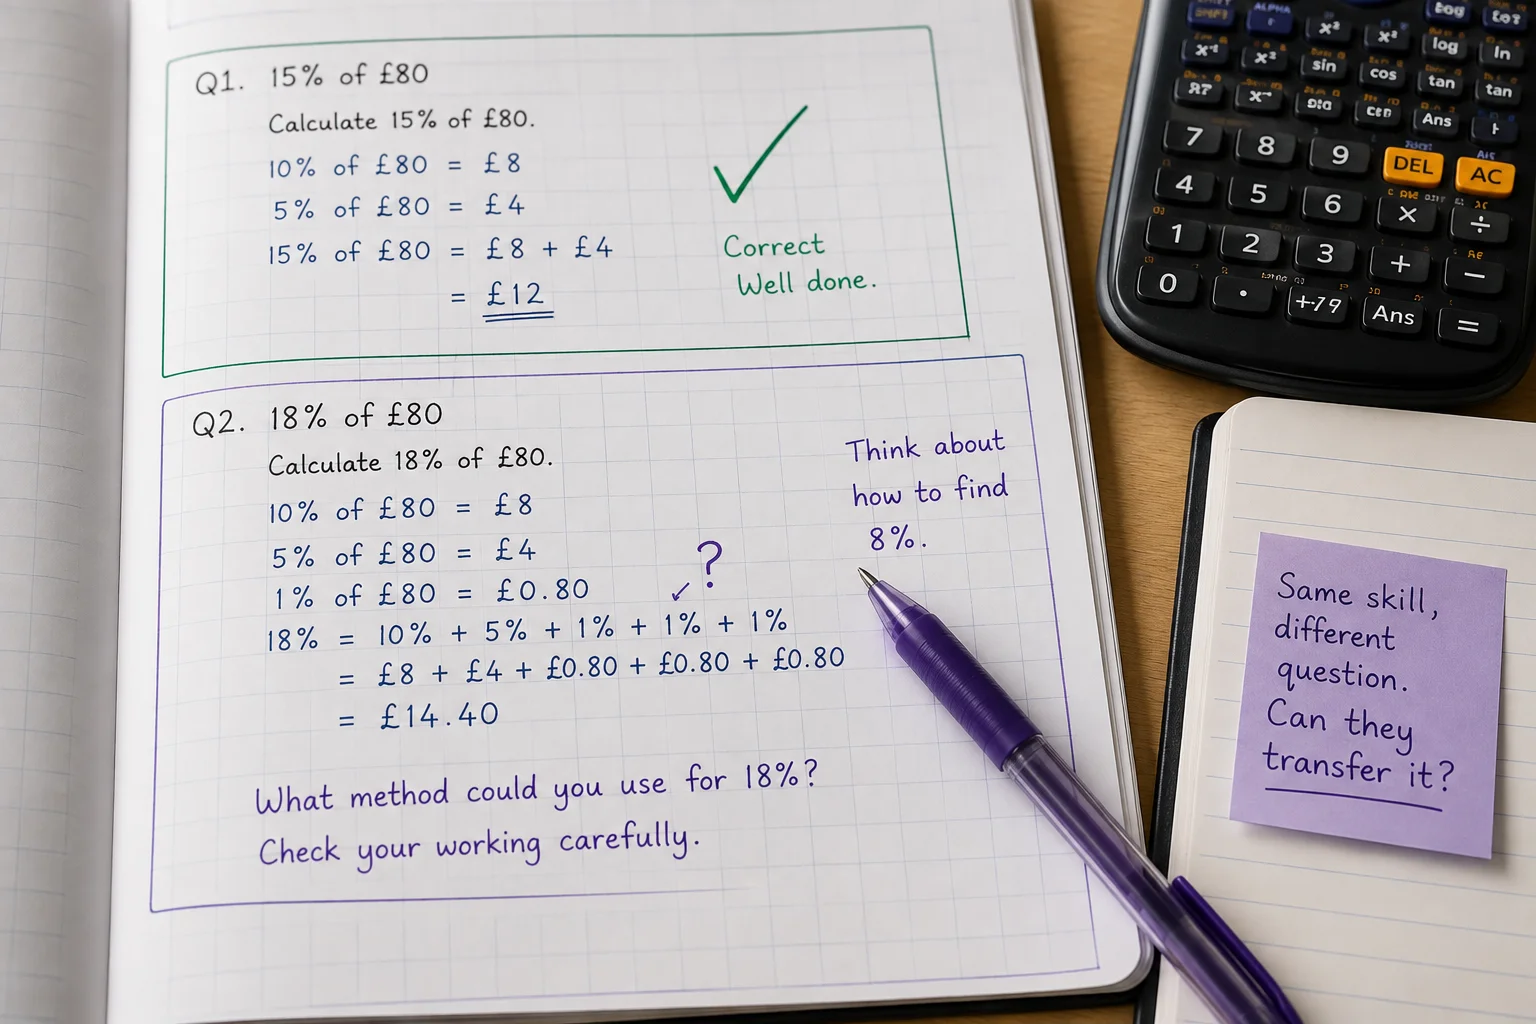 Q1. 15% of £80
Calculate 15% of £80.
10% of £80 = £8
5% of £80 = £4
15% of £80 = £8 + £4
= £12
Correct
Well done.
Q2. 18% of £80
Calculate 18% of £80.
10% of £80 = £8
5% of £80 = £4
1% of £80 = £0.80
?
18% = 10% + 5% + 1% + 1% + 1%
= £8 + £4 + £0.80 + £0.80 + £0.80
= £14.40
Think about
how to find
8%.
What method could you use for 18%?
Check your working carefully.
Same skill,
different
question.
Can they
transfer it?
ALPHA
log ln
sin cos tan tan
Ans
7 8 9 DEL AC
4 5 6 × ÷
1 2 3 + −
0 . Ans =